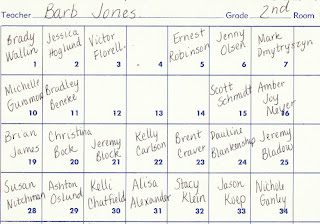 Teacher Barb Jones Grade 2nd Room
Brady Jessica Victor Ernest Jenny Mark
Wallin Hoglund Florell Robinson Olsen Dmytryszyn
1 2 3 4 5 6 7
Michelle Bradley Scott Schmidt Amber
Guramow Beneke Joy
Meyer
10 11 14 15 16
Brian Christina Jeremy Kelly Brent Pauline Jeremy
James Bock Block Carlson Craver Blankenship Bladow
19 20 21 22 23 24 25
Susan Ashton Kelli Alisa Stacy Jason Nichole
Nutchman Oslund Chatfield Alexander Klein Koep Ganby
28 29 30 31 32 33 34